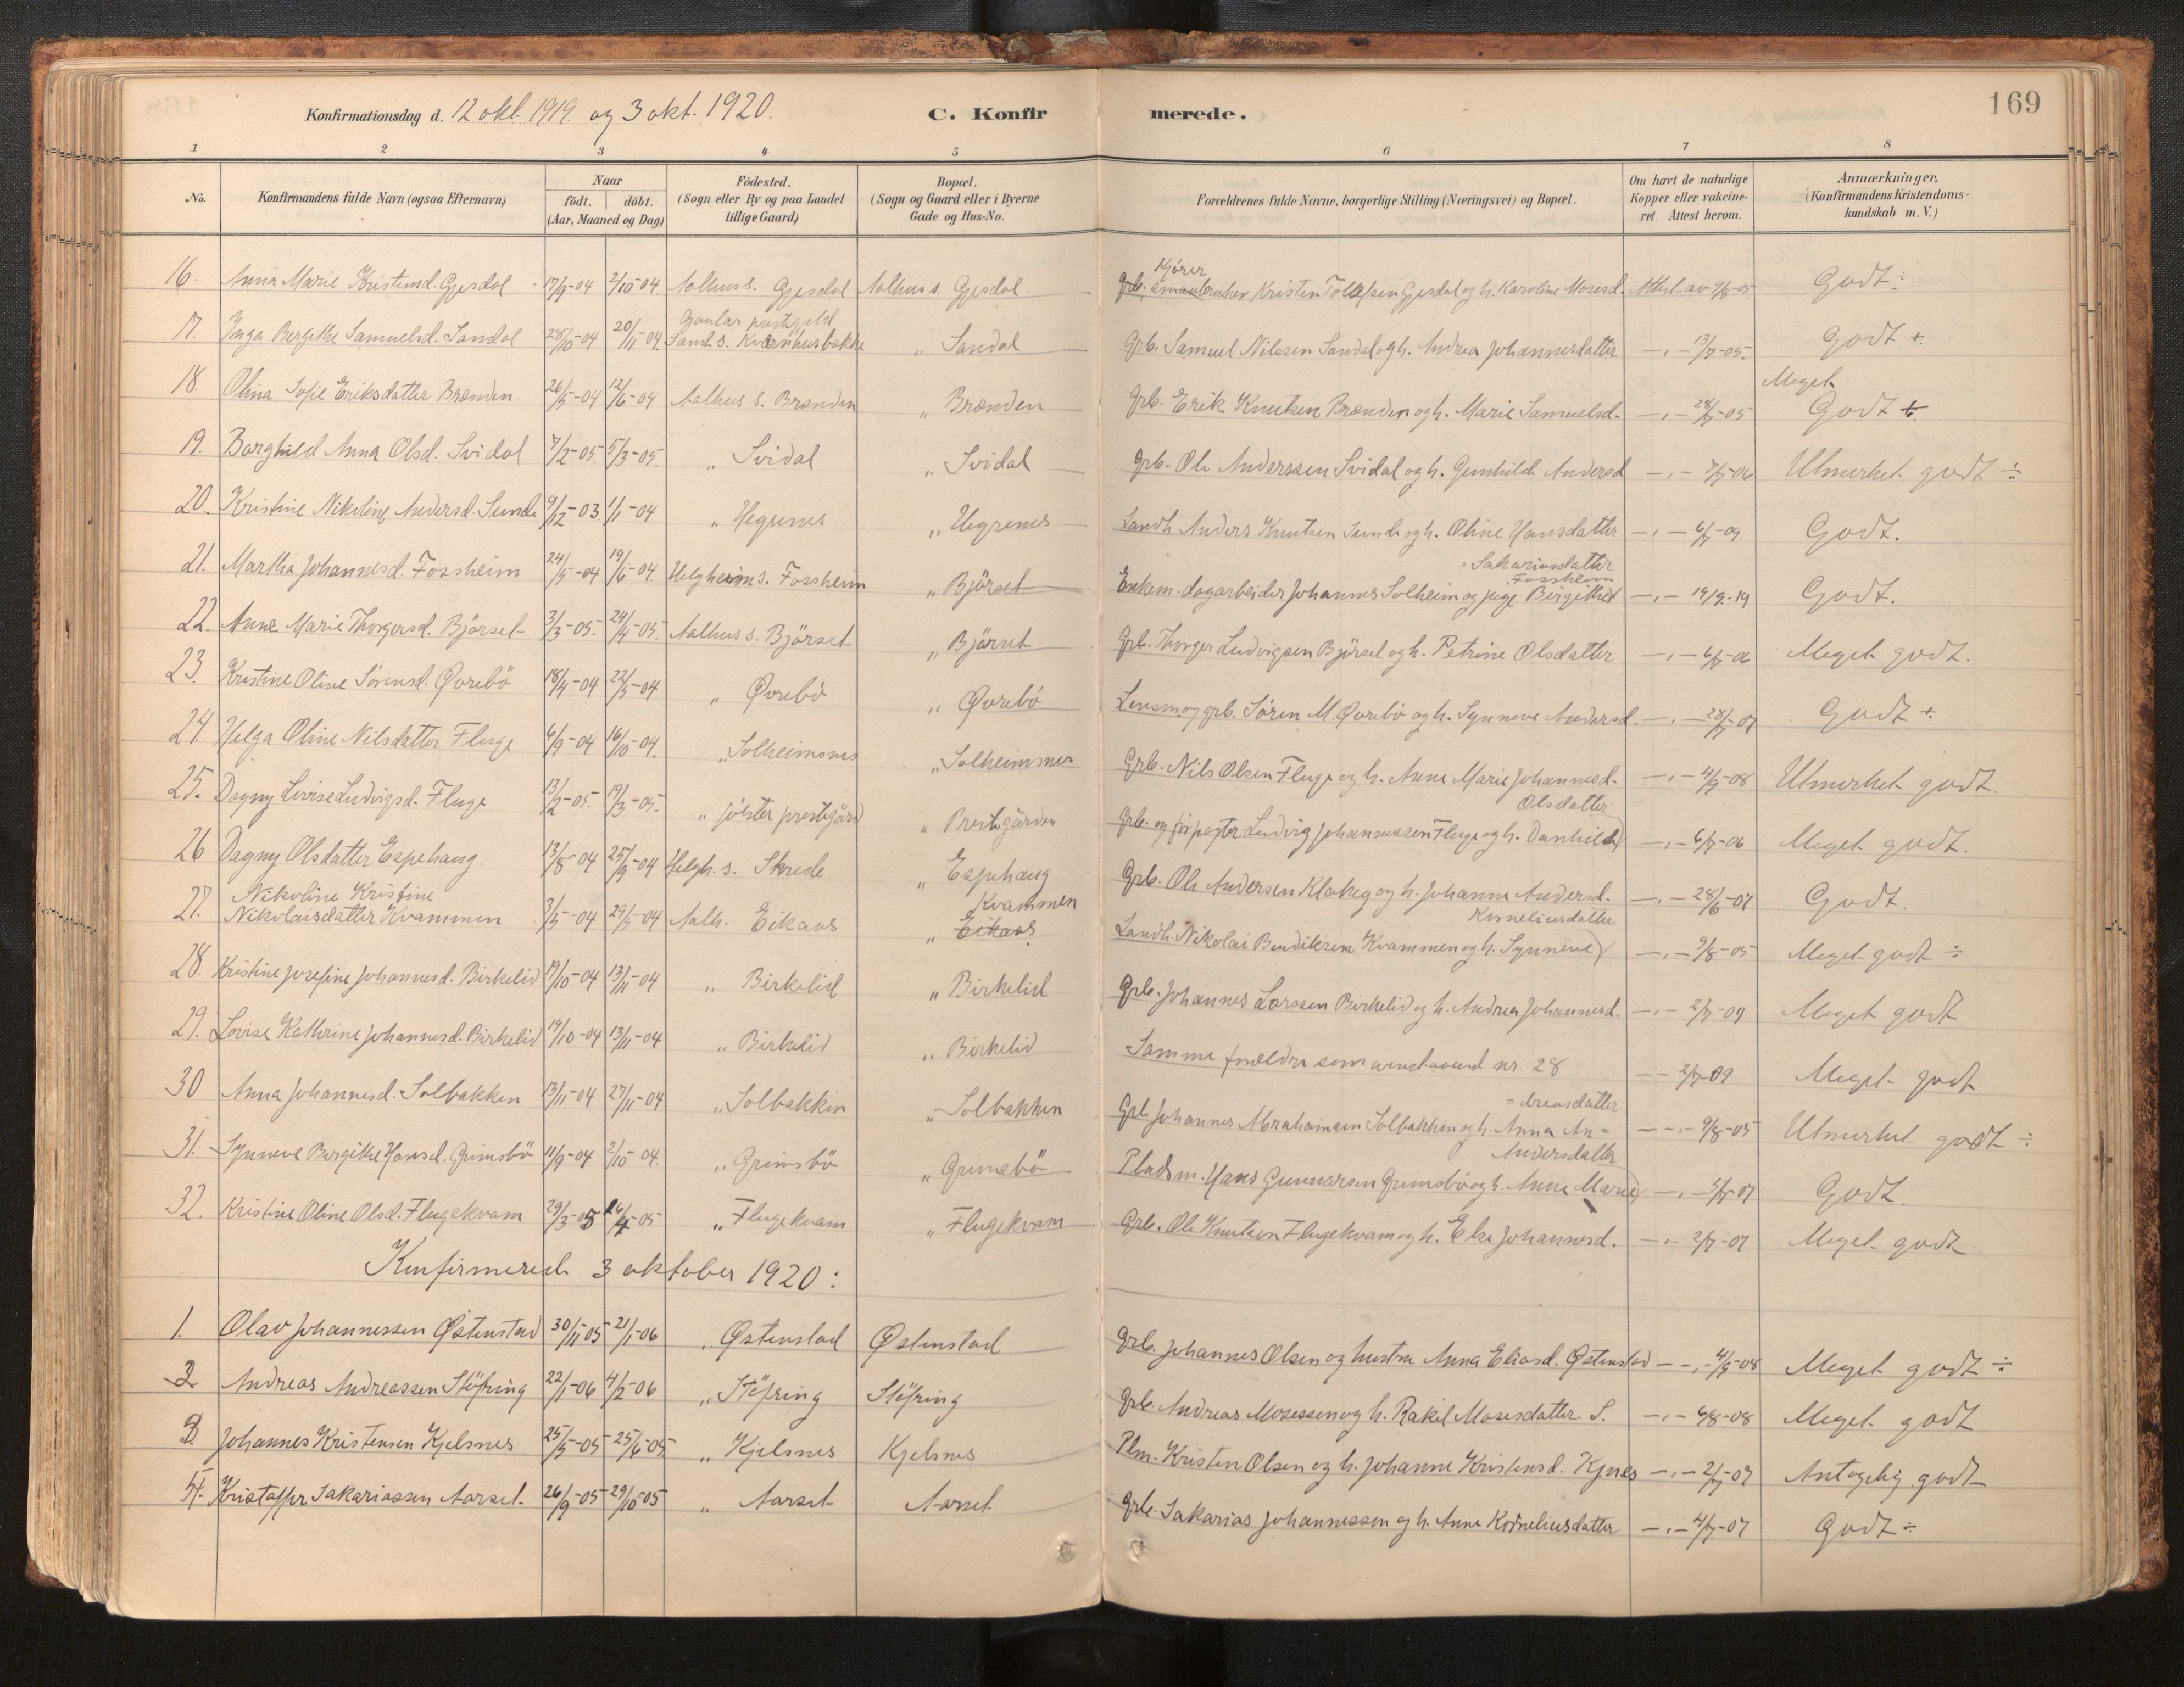 Konfirmationsdag d. 12 okt. 1919 og 3 okt. 1920.
C. Konfirmerede.
169
1 2 3 4 5 6 7 8
No.
Konfirmandens fulde Navn (ogsaa Efternavn)
Naar födt. döbt. (Aar, Maaned og Dag)
Födested. (Sogn eller By og paa Landet tillige Gaard)
Bopæl. (Sogn og Gaard eller i Byerne Gade og Hus-No.
Forældrenes fulde Navne, borgerlige Stilling (Næringsvei) og Bopæl.
Om havt de naturlige Kopper eller vakcineret Attest herom.
Anmærkninger, (Konfirmandens Kristendomskundskab m. V.)
16. Anna Marie Kristensd. Gjesdal 17/9-04 2/10-04. Aalhus s. Gjesdal Aalhus s. Gjesdal Grb. Kjörer Kristen Tollefsen Gjesdal og h. Karoline Mosesd. Attest av 9/8-05 Godt ÷
17. Inga Bergithe Samuelsd. Sandal 28/10-04 20/11-04. Gaular prestegjeld Sands. Kvernhusbakke „ Sandal Grb. Samuel Nilssen Sandal og h. Andrea Johannesdatter —„— 13/7-05. Godt +
18 Olina Sofie Eriksdatter Brænden 26/5-04 12/6-04 Aalhus s. Brænden „ Brænden Grb. Erik Knutsen Brænden og h. Marie Samuelsd. —„— 28/7-05 Meget Godt ÷
19. Borghild Anna Olsd. Svidal 7/2-05. 5/3-05. „ Svidal „ Svidal Grb. Ole Anderssen Svidal og h. Gunhilde Andersd —„— 7/7-06 Utmerket godt ÷
20. Kristine Nikoline Andersd. Sunde 9/12-03 1/1-04 „ Hegrenes „ Hegrenes Landh. Anders Knutsen Sunde og h. Oline Hansdatter —„— 6/7-09 Godt.
21. Martha Johannesd. Fossheim 24/5-04 19/6-04. Helgheim s. Fossheim „ Bjørset Enkem. dagarbeider Johannes Solheim og pige Bergithe Sakariasdatter Fossheim —„— 19/9-19 Godt.
22. Anne Marie Thorgersd. Björset 3/3-05. 24/4-05. Aalhus s. Björset „ Björset Grb. Thorger Ludvigsen Björset og h. Petrine Olsdatter —„— 6/7-06 Meget godt.
23. Kristine Oline Sörensd. Øvrebö 18/4-04 22/5-04 „ Øvrebö „ Øvrebö Lensm. og grb. Sören M. Øvrebö og h. Synneve Andersd —„— 28/7-07 Godt +
24. Helga Oline Nilsdatter Fluge 6/9-04 16/10-04. „ Solheimsnes „ Solheimsnes Grb. Nils Olsen Fluge og h. Anne Marie Johannesd. —„— 4/9-08 Utmerket godt.
25. Dagny Lovise Ludvigsd. Fluge 13/2-05. 19/3-05. „ Jölster prestegård „ Prestegården Grb. og forpagter Ludvig Johannessen Fluge og h. Danhilda Olsdatter —„— 6/7-06 Meget godt.
26 Dagny Olsdatter Espehaug 13/8-04 25/9-04 Helgh. s. Skrede „ Espehaug Grb. Ole Andersen Klakeg og h. Johanne Andersd. —„— 28/6-07 Godt.
27. Nikoline Kristine Nikolaisdatter Kvammen 3/5-04 29/5-04 Aalh. Eikaas „ Kvammen Eikaas Landh. Nikolai Bendiksen Kvammen og h. Synneve Korneliusdatter —„— 9/8-05 Meget godt ÷
28. Kristine Josefine Johannesd. Birkelid 19/10-04 13/11-04 „ Birkelid „ Birkelid Grb. Johannes Larssen Birkelid og h. Andrea Johannesd. —„— 2/7-09 Meget godt
29. Lovise Kathrine Johannesd. Birkelid 19/10-04 13/11-04 „ Birkelid „ Birkelid Samme forældre som ovenstaaend nr. 28 —— 2/7-09 Meget godt
30 Anna Johannesd. Solbakken 13/11-04 27/11-04 „ Solbakken „ Solbakken Grb. Johannes Abrahamsen Solbakken og h. Anna An= =dreasdatter ——„— 9/8-05 Utmerket godt ÷
31. Synneve Bergithe Hansd. Grimsbö 11/9-04 2/10-04. „ Grimsbö „ Grimsbö Pladsm. Hans Gunnarsen Grimsbö og h. Anne Marie Andersdatter —„— 5/7-07 Godt.
32. Kristine Oline Olsd. Flugekvam 29/3-05 16/4-05 „ Flugekvam „ Flugekvam Grb. Ole Knutsen Flugekvam og h. Else Johannesd. —„— 2/7-07 Meget godt
Konfirmered 3 oktober 1920:
1. Olav Johannessen Østenstad 30/11-05 21/1-06 „ Østenstad Østenstad Grb. Johannes Olsen og hustru Anna Eliasd. Østenstad ——„— 4/9-08 Meget godt ÷
2. Andreas Andreassen Stöfring 22/1-06 4/2-06 „ Stöfring Stöfring Grb. Andreas Mosessen og h. Rakel Mosesdatter S. —„— 6/8-08 Meget godt
3. Johannes Kristensen Kjelsnes 25/5-05 25/6-05 „ Kjelsnes Kjelsnes Plm. Kristen Olsen og h. Johanne Kristensd. Kjnes —„— 2/7-07 Antagelig godt
4. Kristoffer Sakariassen Aarset 26/9-05 29/10-05 „ Aarset Aarset Grb. Sakarias Johannessen og h. Anne Korneliusdatter —„— 4/7-07 Godt ÷